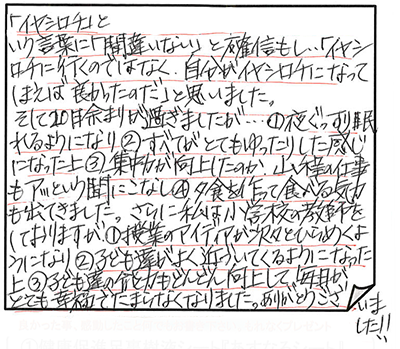 「イヤシロチ」と
いう言葉に「間違いない」と確信もし…「イヤシ
ロチに行くのではなく、自分がイヤシロチになって
しまえば良かったのだ」と思いました。
そして20日余まりが過ぎましたが…①夜ぐっすり眠
れるようになり②すべてがとてもゆったりした感じ
になった上③集中力が向上したのか、山程の仕事
もアッという間にこなし④夕食を作って食べる気力
も出てきました。さらに私は小学校の教師を
しておりますが、①授業のアイディアが次々とひらめくよ
うになり②子ども達がよく近づいてくるようになった
上③子ども達の能力もどんどん向上して「毎日が
とても幸福でたまらなくなりました。ありがとうござ
いま
した!!